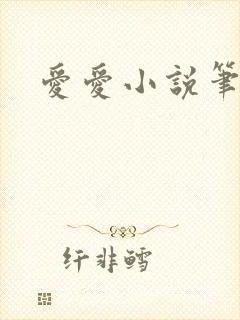 愛愛小說筆
纤非鳕